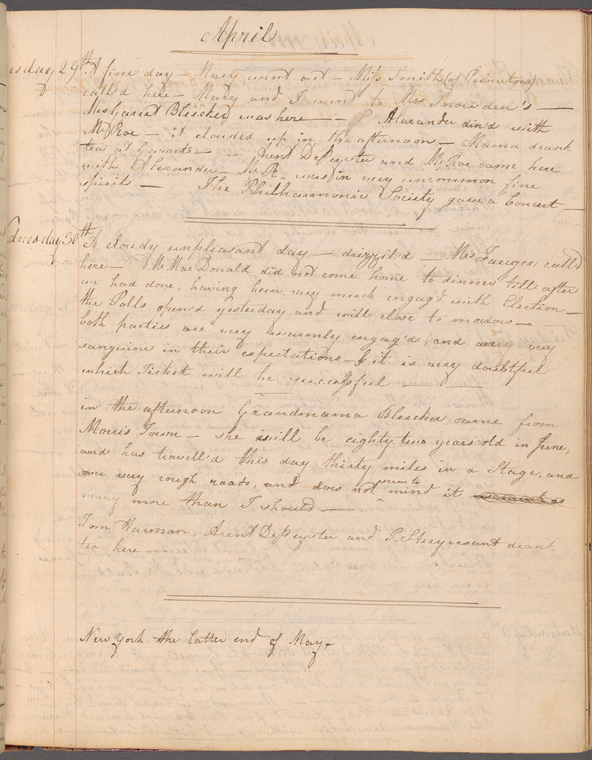 April
29th A fine day — Mary went out — Miss Smith (of Princeton)
called here — Mary and I went to Mrs Snowden's —
Miss Garret Bleecker was here — Alexander din'd with
Mr Roe — it clouded up in the afternoon — Mama drank
tea at — Aunt DePeyster and Mr Roe came here
with Alexander — Mr R. was in very uncommon fine
spirits — The Philharmonic Society gave a Concert —
30th A cloudy unpleasant day — drizzl'd — Mrs call'd
here — Mr MacDonald did not come home to dinner till after
we had done, having been very much engag'd with Election —
the Polls open'd yesterday and will close to morrow —
both parties are very warmly engag'd, and are very
sanguine in their expectations — & it is very doubtful
which Ticket will be successful —
in the afternoon Grandmama Bleecker came from
Morris Town — she will be eighty two years old in June,
and has travell'd this day thirty miles in a Stage, and
over very rough roads, and does not seem to mind it
many more than I should —
Tom , Aunt DePeyster and P. Stuyvesant drank
tea here —
New York the latter end of May —